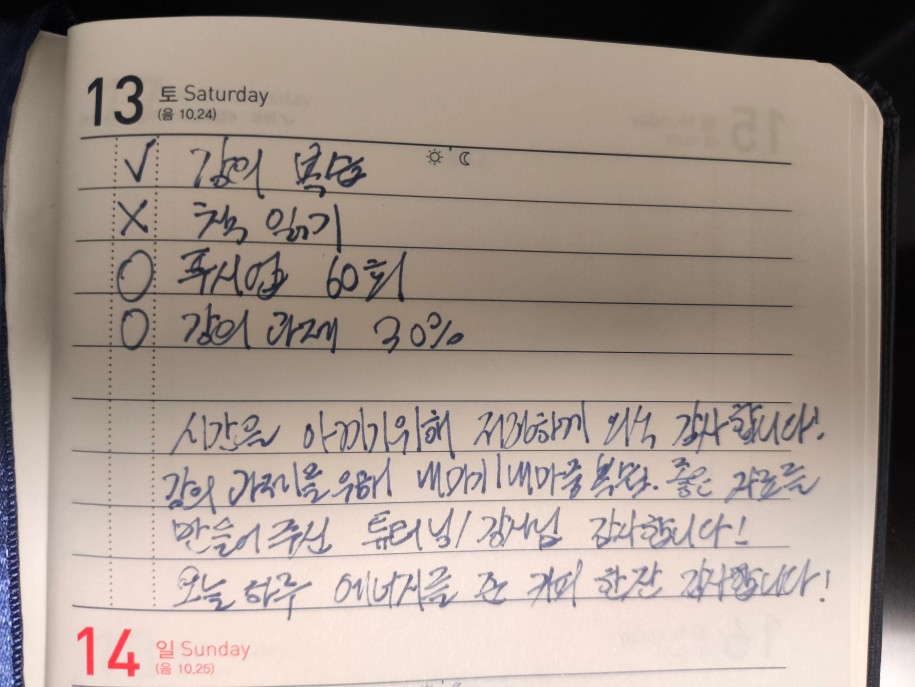 13 토 Saturday
(음 10.24)
√ 강의 복습
× 책 읽기
○ 푸시업 60회
○ 강의 과제 30%
시간을 아끼기 위해 저렴하게 외식 감사합니다!
강의 과제를 위해 복습. 좋은 자료를
만들어 주신 튜터님/강사님 감사합니다!
오늘 하루 에너지를 준 커피 한잔 감사합니다!
14 일 Sunday
(음 10.25)